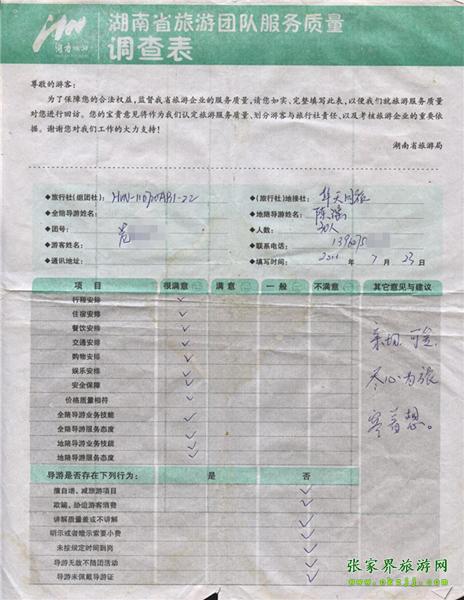 湖南省旅游团队服务质量
调查表
尊敬的游客:
为了保障您的合法权益,监督我省旅游企业的服务质量,请您如实、完整填写此表,以便我们就旅游服务质量
对您进行回访。您的宝贵意见将作为我们认定旅游服务质量、划分游客与旅行社责任、以及考核旅游企业的重要依
据。谢谢您对我们工作的大力支持!
湖南省旅游局
◆旅行社(组团社):
◆(旅行社)地接社: 华天国旅
◆全陪导游姓名:
◆地陪导游姓名:
◆团号:
◆人数:
◆游客姓名:
◆联系电话:
◆通讯地址:
◆填写时间: 2011 年 7 月 23 日
项 目 很满意 满 意 一 般 不满意 其它意见与建议
行程安排
住宿安排
餐饮安排
交通安排
购物安排
娱乐安排
安全保障
价格质量相符
全陪导游业务技能
全陪导游服务态度
地陪导游业务技能
地陪导游服务态度
亲切、可坐
尽心为游
客着想。
导游是否存在下列行为: 是 否
擅自增、减旅游项目
欺骗、胁迫游客消费
讲解质量差或不讲解
明示或者暗示索要小费
未按规定时间到岗
导游无故不随团活动
导游未佩戴导游证
张家界旅游网
www.okzjj.com